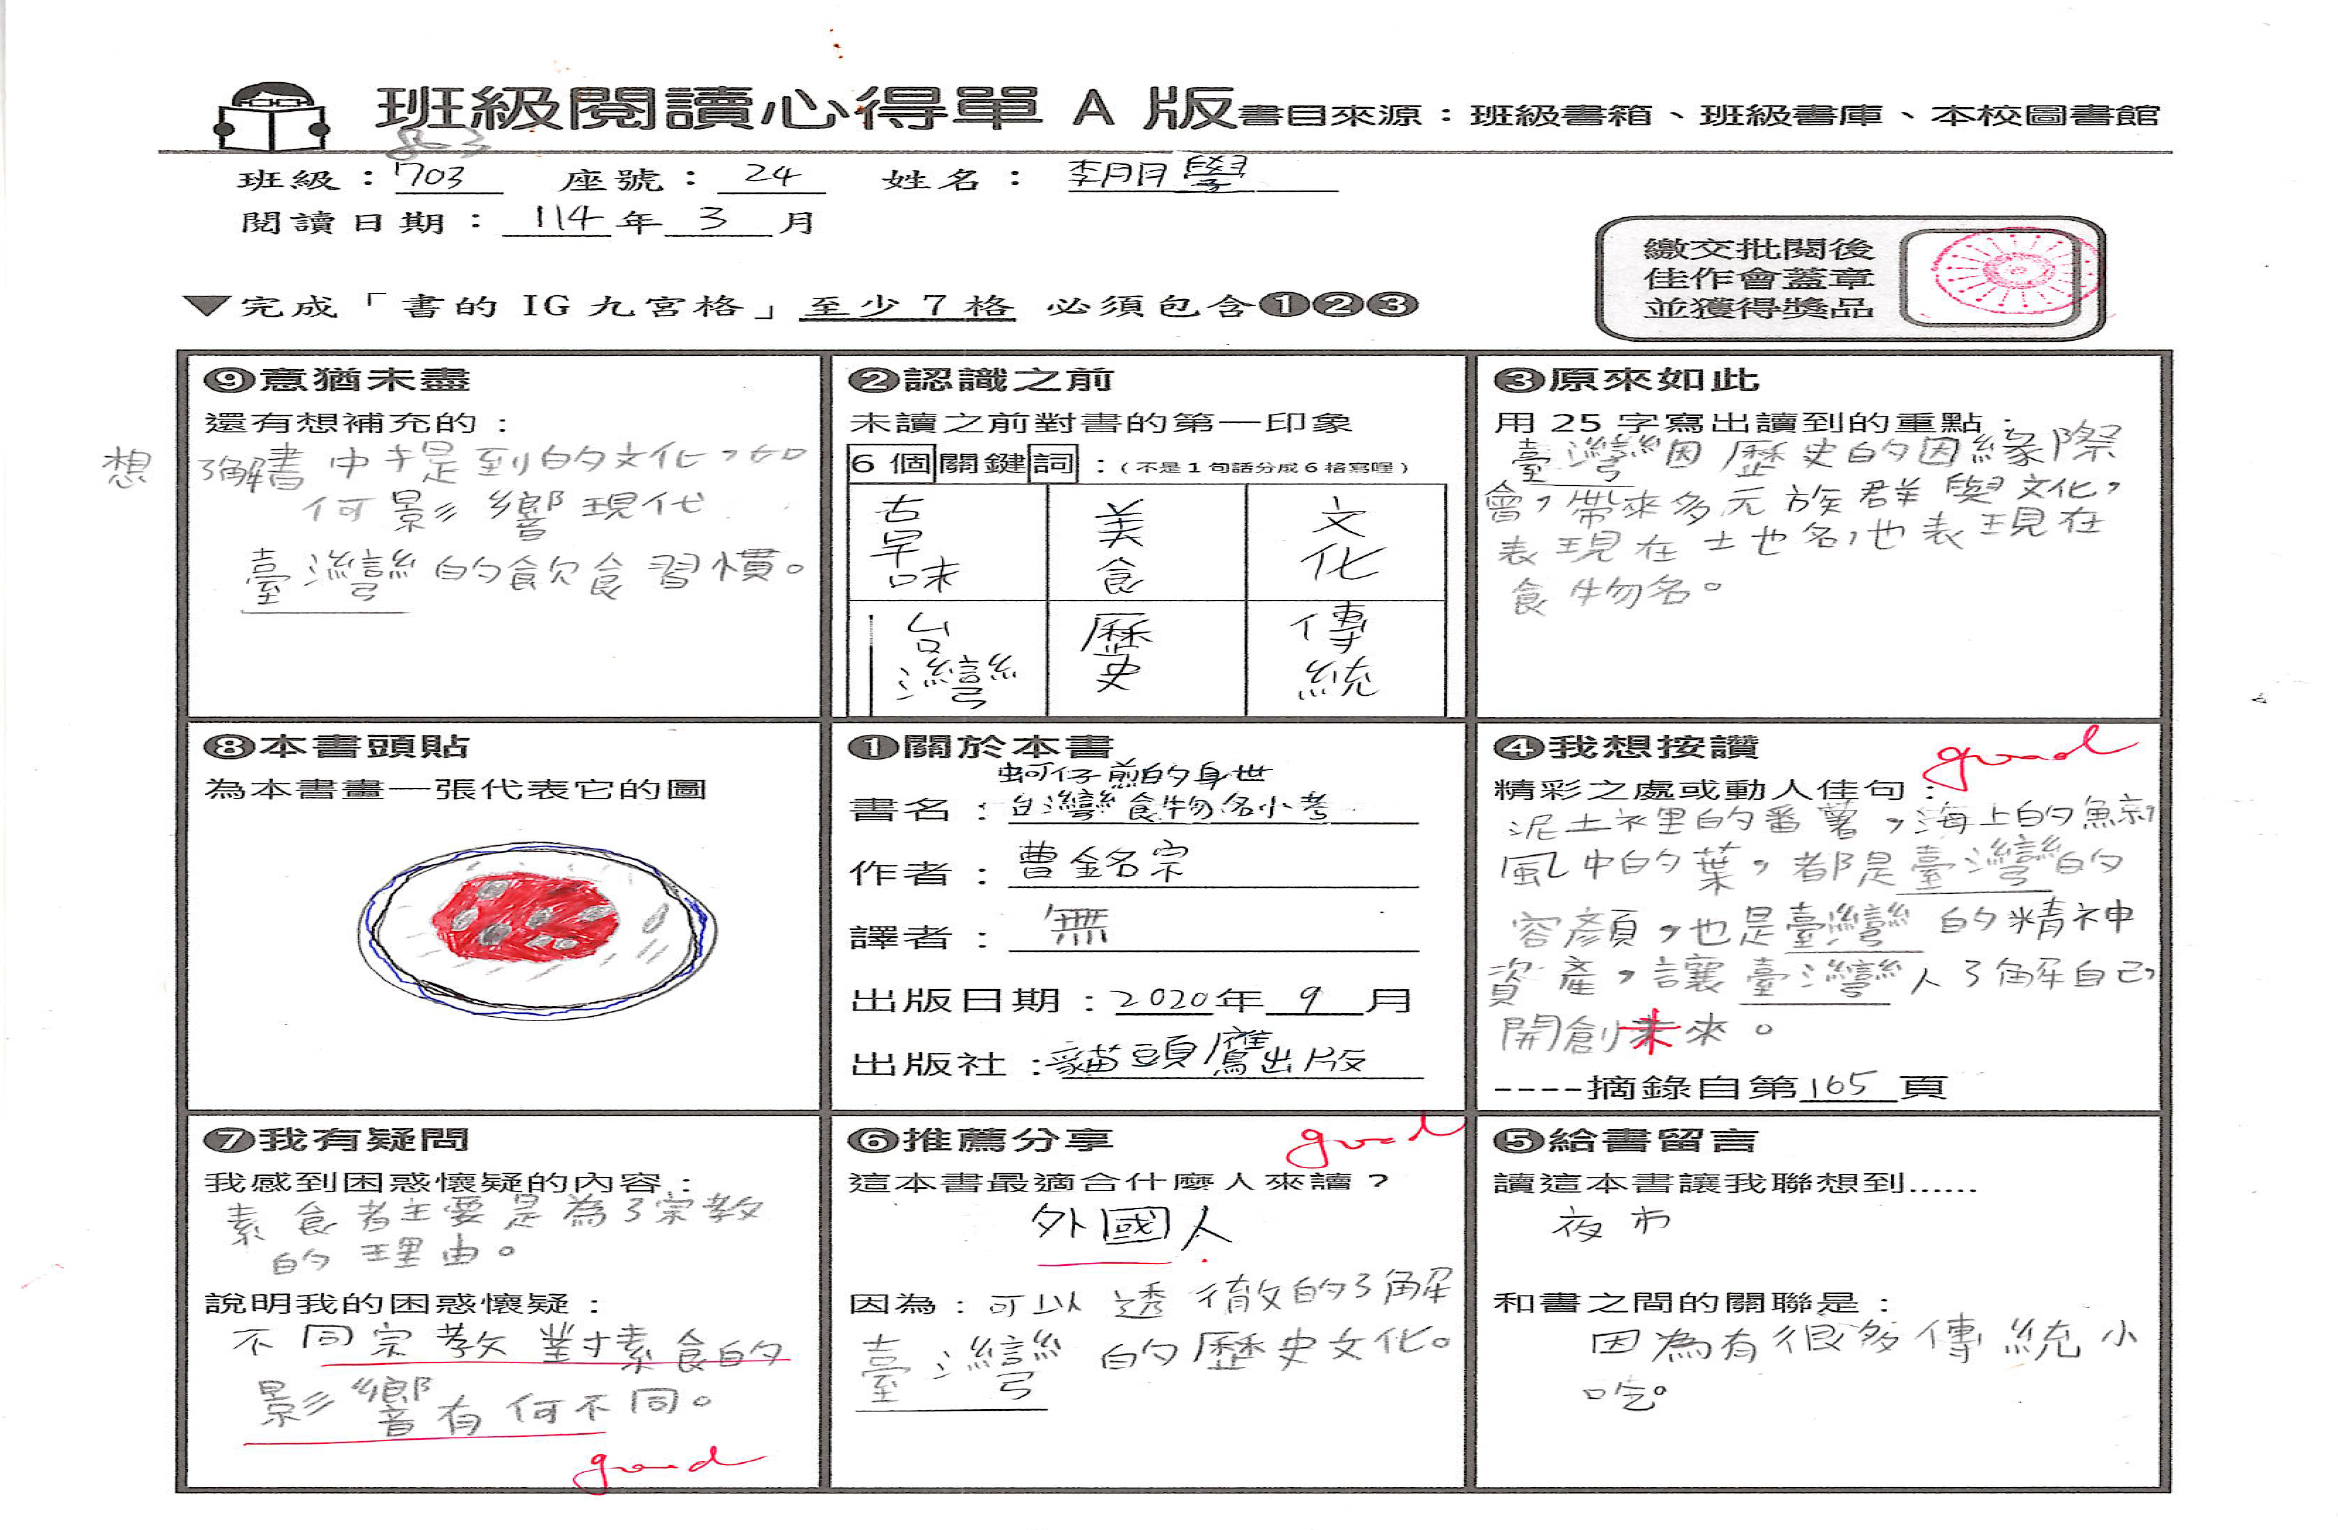 班級閱讀心得單 A 版書目來源：班級書箱、班級書庫、本校圖書館
803
班級：703 座號：24 姓名：李朋學
閱讀日期：114年3月
繳交批閱後
佳作會蓋章
並獲得獎品
▼完成「書的 IG 九宮格」至少 7 格 必須包含❶❷❸
❾意猶未盡
還有想補充的：
想了解書中提到的文化，如
何影響現代
臺灣的飲食習慣。
❷認識之前
未讀之前對書的第一印象
6 個關鍵詞：（不是 1 句話分成 6 格寫喔）
古早味 美食 文化
台灣 歷史 傳統
❸原來如此
用 25 字寫出讀到的重點：
臺灣因歷史的因緣際
會，帶來多元族群與文化，
表現在土地名，也表現在
食物名。
❽本書頭貼
為本書畫一張代表它的圖
❶關於本書
蚵仔煎的身世
書名：台灣食物名小考
作者：曹銘宗
譯者：無
出版日期：2020年9月
出版社：貓頭鷹出版
❹我想按讚
good
精彩之處或動人佳句：
泥土裡的番薯，海上的鯨，
風中的葉，都是臺灣的
容顏，也是臺灣的精神
資產，讓臺灣人了解自己，
開創未來。
----摘錄自第165頁
❼我有疑問
我感到困惑懷疑的內容：
素食者主要是為了宗教
的理由。
說明我的困惑懷疑：
不同宗教對素食的
影響有何不同。
good
❻推薦分享
good
這本書最適合什麼人來讀？
外國人
因為：可以透徹的了解
臺灣的歷史文化。
❺給書留言
讀這本書讓我聯想到……
夜市
和書之間的關聯是：
因為有很多傳統小
吃。